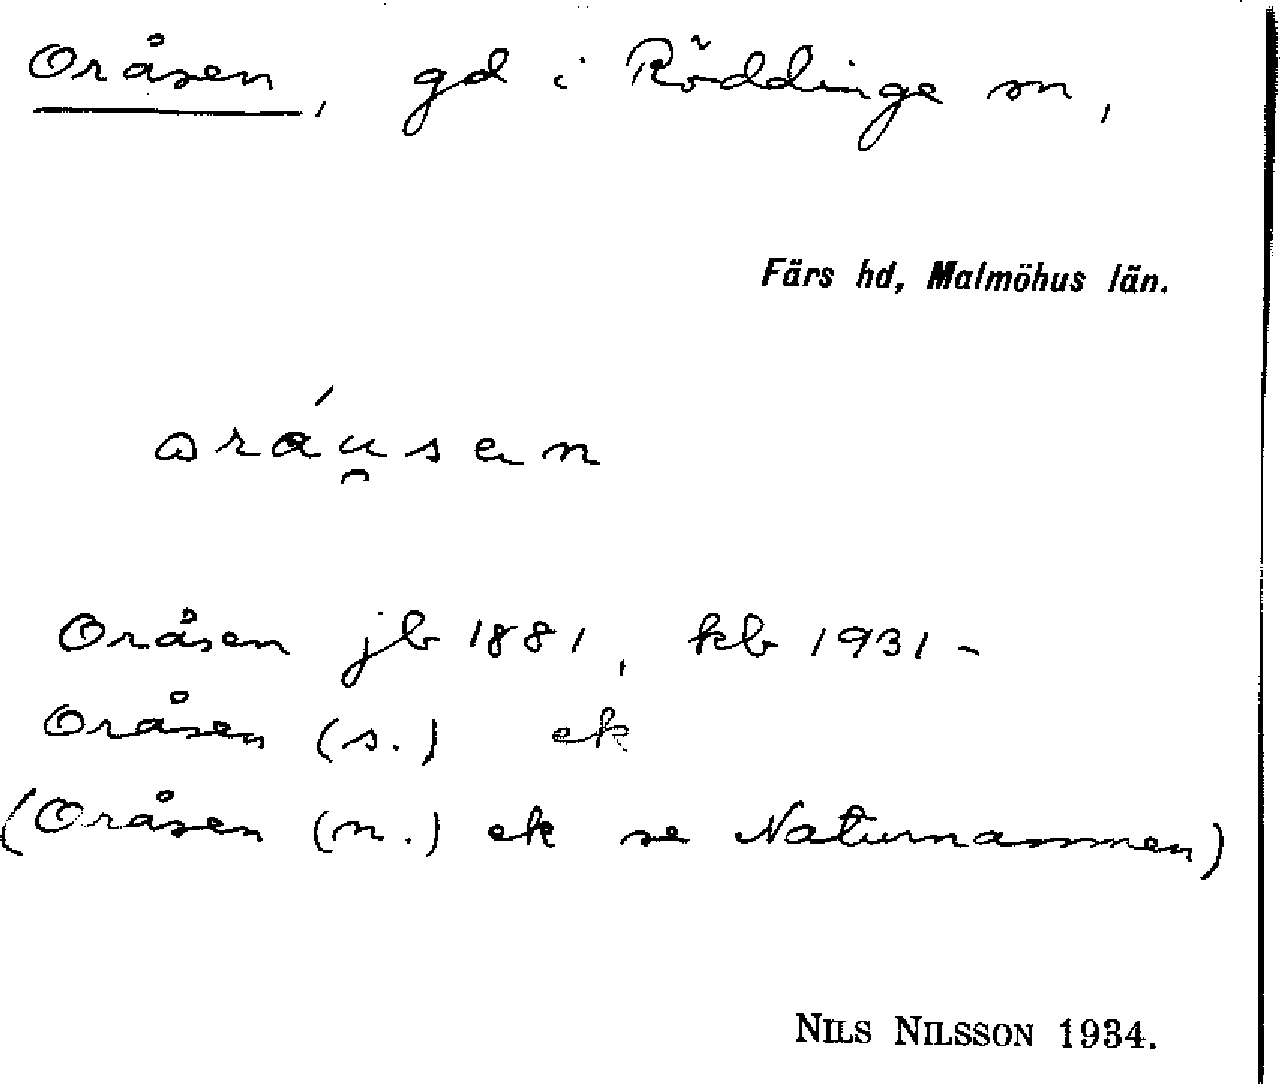 Oråsen, gd i Röddinge sn,
Färs hd, Malmöhus län.
oráu̯sen
Oråsen jb 1881, kb 1931-
Oråsen (s.) ek
(Oråsen (n.) ek se Naturnamnen)
NILS NILSSON 1934.